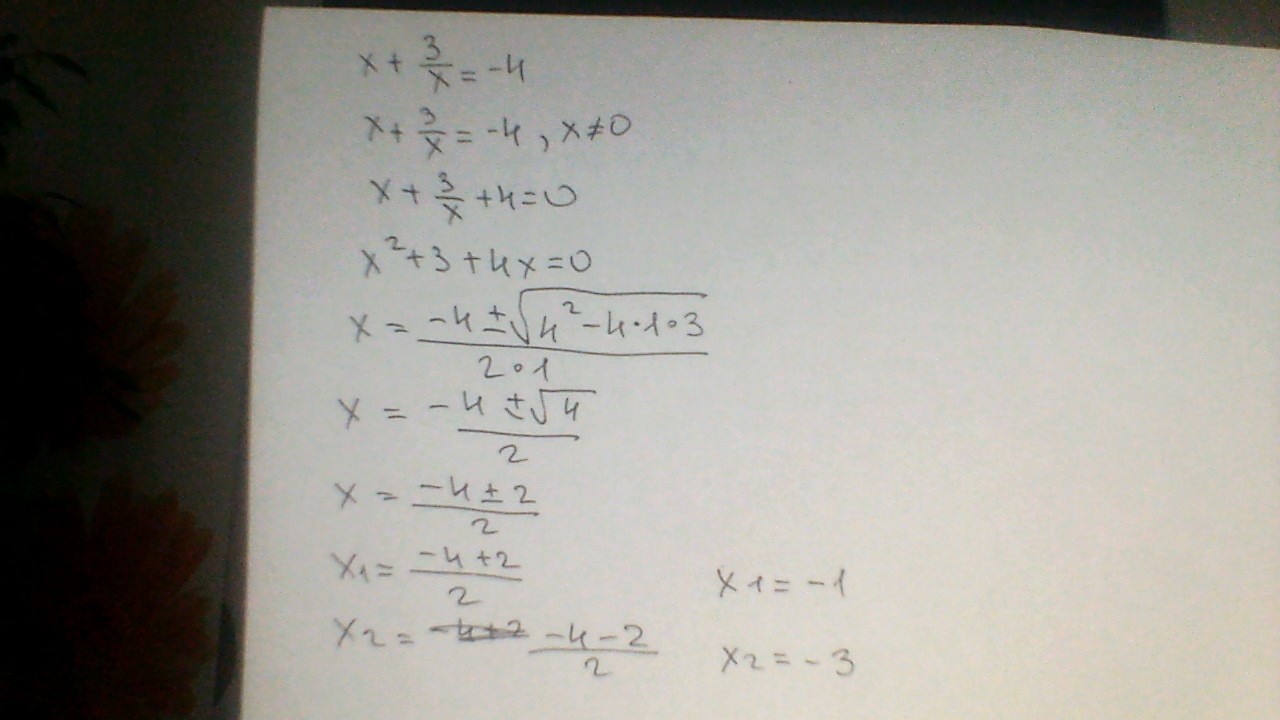 x + 3/x = -4
x + 3/x = -4 , x ≠ 0
x + 3/x + 4 = 0
x² + 3 + 4x = 0
x = (-4 ± √(4² - 4·1·3)) / (2·1)
x = -(4 ± √4) / 2
x = (-4 ± 2) / 2
x₁ = (-4 + 2) / 2    x₁ = -1
x₂ = ~~-4+2~~ (-4 - 2) / 2    x₂ = -3